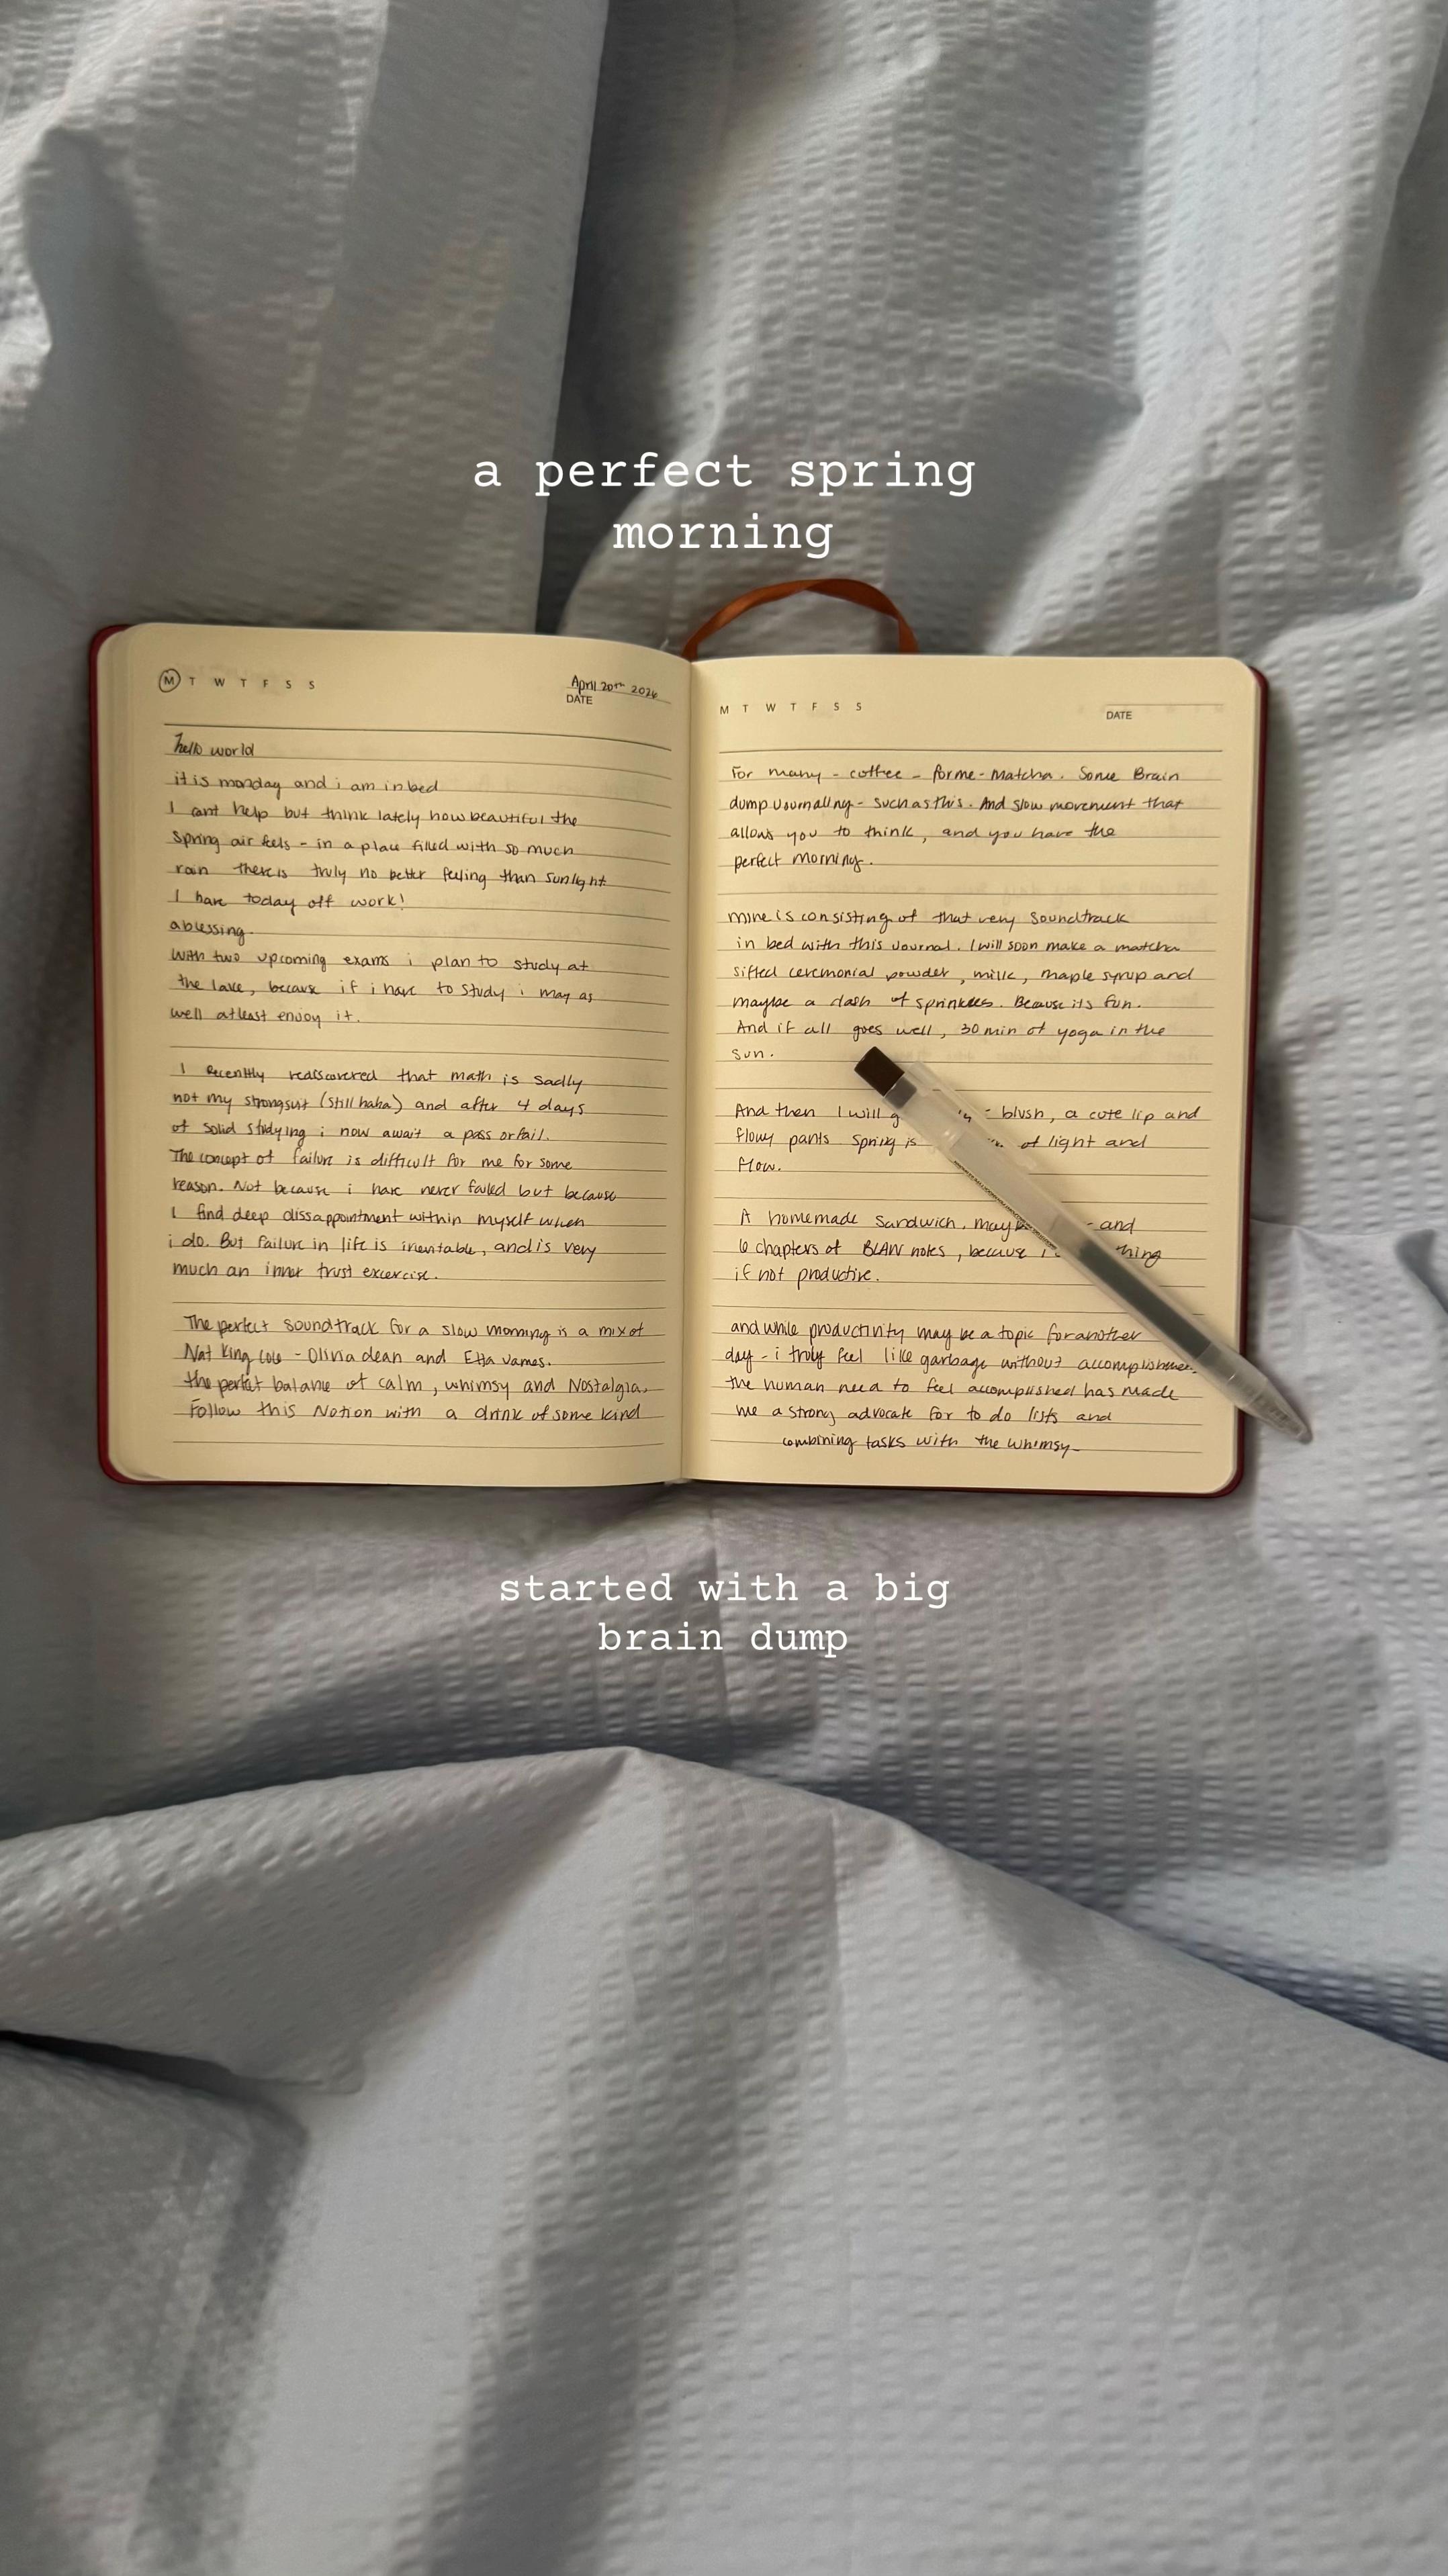 a perfect spring
morning
M T W T F S S
April 20th 2026
DATE
hello world
it is monday and i am in bed
I cant help but think lately how beautiful the
spring air feels - in a place filled with so much
rain there is truly no better feeling than sunlight
I have today off work!
a blessing.
With two upcoming exams i plan to study at
the lake, because if i have to study i may as
well atleast enjoy it.
I recently rediscovered that math is sadly
not my strongsuit (still haha) and after 4 days
of solid studying i now await a pass or fail.
The concept of failure is difficult for me for some
reason. Not because i have never failed but because
I find deep dissappointment within myself when
i do. But failure in life is inevitable, and is very
much an inner trust excercise.
The perfect soundtrack for a slow morning is a mix of
Nat King Cole - Olivia dean and Etta James.
the perfect balance of calm, whimsy and Nostalgia.
Follow this Notion with a drink of some kind
M T W T F S S
DATE
For many - coffee - for me - Matcha. Some Brain
dump Journaling - such as this. And slow movement that
allows you to think, and you have the
perfect morning.
mine is consisting of that very soundtrack
in bed with this Journal. I will soon make a matcha
sifted ceremonial powder, milk, maple syrup and
maybe a dash of sprinkles. Because its fun.
And if all goes well, 30 min of yoga in the
sun.
And then I will blush, a cute lip and
flowy pants spring is of light and
flow.
A homemade sandwich, and
6 chapters of BLAW notes, because
if not productive.
and while productivity may be a topic for another
day - i truly feel like garbage without
the human need to feel accomplished has made
me a strong advocate for to do lists and
combining tasks with the whimsy
started with a big
brain dump